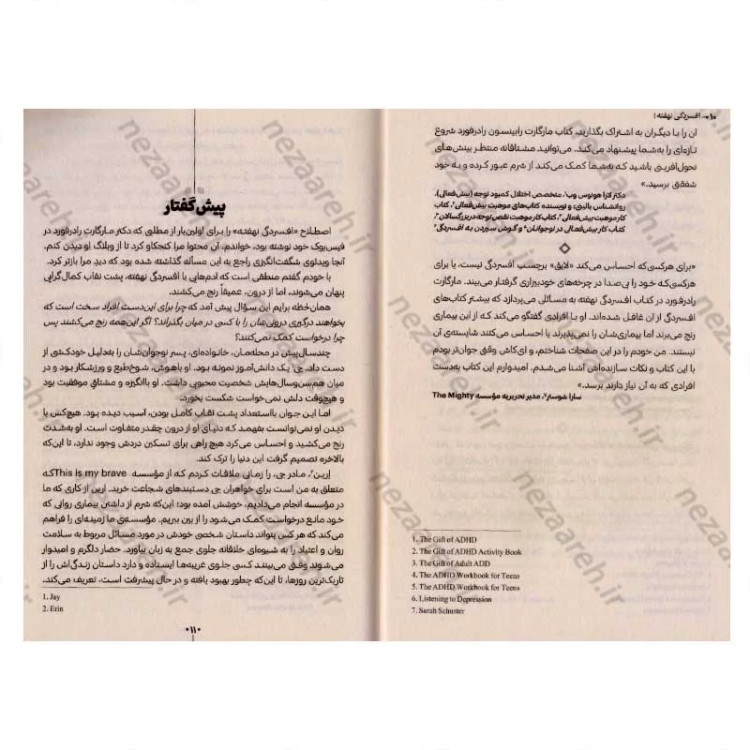 ۱۰ • افسردگی نهفته |
آن را با دیگران به اشتراک بگذارید، کتاب مارگارت رابینسون رادرفورد شروع
تازه‌ای را به‌شما پیشنهاد می‌کند. می‌توانید مشتاقانه منتظر بینش‌های
تحول‌آفرینی باشید که به‌شما کمک می‌کند از شرم عبور کرده و به خود
شفقتی برسید.»
دکتر لارا هونوس وب، متخصص اختلال کمبود توجه (بیش‌فعالی)،
روانشناس بالینی، و نویسنده کتاب‌های موهبت بیش‌فعالی¹، کتاب
کار موهبت بیش‌فعالی²، کتاب کار موهبت نقص توجه در بزرگسالان³،
کتاب کار بیش‌فعالی در نوجوانان⁴ و گوش سپردن به افسردگی⁶
«برای هرکسی‌که احساس می‌کند «لایق» برچسب افسردگی نیست، یا برای
هرکسی‌که خود را بی‌صدا در چرخه‌های خودبیزاری گرفتار می‌بیند. مارگارت
رادرفورد در کتاب افسردگی نهفته به مسائلی می‌پردازد که بیشتر کتاب‌های
افسردگی از آن غافل شده‌اند. او با افرادی گفتگو می‌کند که از این بیماری
رنج می‌برند اما بیماری‌شان را نمی‌پذیرند یا احساس می‌کنند شایسته‌ی آن
نیستند. من خودم را در این صفحات شناختم، و ای‌کاش وقتی جوان‌تر بودم
با این کتاب و نکات سازنده‌اش آشنا می‌شدم. امیدوارم این کتاب به‌دست
افرادی که به آن نیاز دارند برسد.»
سارا شوستر⁷، مدیر تحریریه مؤسسه The Mighty
1. The Gift of ADHD
2. The Gift of ADHD Activity Book
3. The Gift of Adult ADD
4. The ADHD Workbook for Teens
5. The ADHD Workbook for Teens
6. Listening to Depression
7. Sarah Schuster
پیش‌گفتار
اصطلاح «افسردگی نهفته» را برای اولین‌بار از مطلبی که دکتر مارگارت رادرفورد در
فیس‌بوک خود نوشته بود، خواندم. آن محتوا مرا کنجکاو کرد تا از وبلاگ او دیدن کنم.
آنجا ویدئوی شگفت‌انگیزی راجع به این مسأله گذاشته شده بود که دید مرا بازتر کرد.
با خودم گفتم منطقی است که آدم‌هایی با افسردگی نهفته، پشت نقاب کمال‌گرایی
پنهان می‌شوند، اما از درون، عمیقاً رنج می‌کشند.
همان‌لحظه برایم این سؤال پیش آمد که چرا برای این‌دست افراد سخت است که
بخواهند درگیری درونی‌شان را با کسی در میان بگذراند؟ اگر این‌همه رنج می‌کشند پس
چرا درخواست کمک نمی‌کنند؟
چندسال‌پیش در محله‌مان، خانواده‌ای، پسر نوجوان‌شان را به‌دلیل خودکشی از
دست داد. جی¹ یک دانش‌آموز نمونه بود. او باهوش، شوخ‌طبع و ورزشکار بود و در
میان هم‌سن‌وسال‌هایش شخصیت محبوبی داشت. او باانگیزه و مشتاق موفقیت بود
و هیچ‌وقت دلش نمی‌خواست شکست بخورد.
اما این جوان بااستعداد پشت نقاب کامل بودن، آسیب دیده بود. هیچ‌کس با
دیدن او نمی‌توانست بفهمد که دنیای او از درون چقدر متفاوت است. او به‌شدت
رنج می‌کشید و احساس می‌کرد هیچ راهی برای تسکین دردش وجود ندارد، تا این‌که
بالاخره تصمیم گرفت این دنیا را ترک کند.
ارین²، مادر جی، را زمانی ملاقات کردم که از مؤسسه This is my brave که
متعلق به من است برای خواهران جی دستبندهای شجاعت خرید. ارین از کاری که ما
در مؤسسه انجام می‌دادیم، خوشش آمده بود؛ این‌که شرم از داشتن بیماری روانی که
خود مانع درخواست کمک می‌شود را از بین ببریم. مؤسسه‌ی ما زمینه‌ای را فراهم
می‌کند که هر کس بتواند داستان شخصی خودش در مورد مسائل مربوط به سلامت
روان و اعتیاد را به شیوه‌ای خلاقانه جلوی جمع به زبان بیاورد. حضار دلگرم و امیدوار
می‌شوند وقتی می‌بینند کسی جلوی غریبه‌ها ایستاده و دارد داستان زندگی‌اش را از
تاریک‌ترین روزها، تا این‌که چطور بهبود یافته و در حال پیشرفت است، تعریف می‌کند.
1. Jay
2. Erin
۱۱
nezaareh.ir